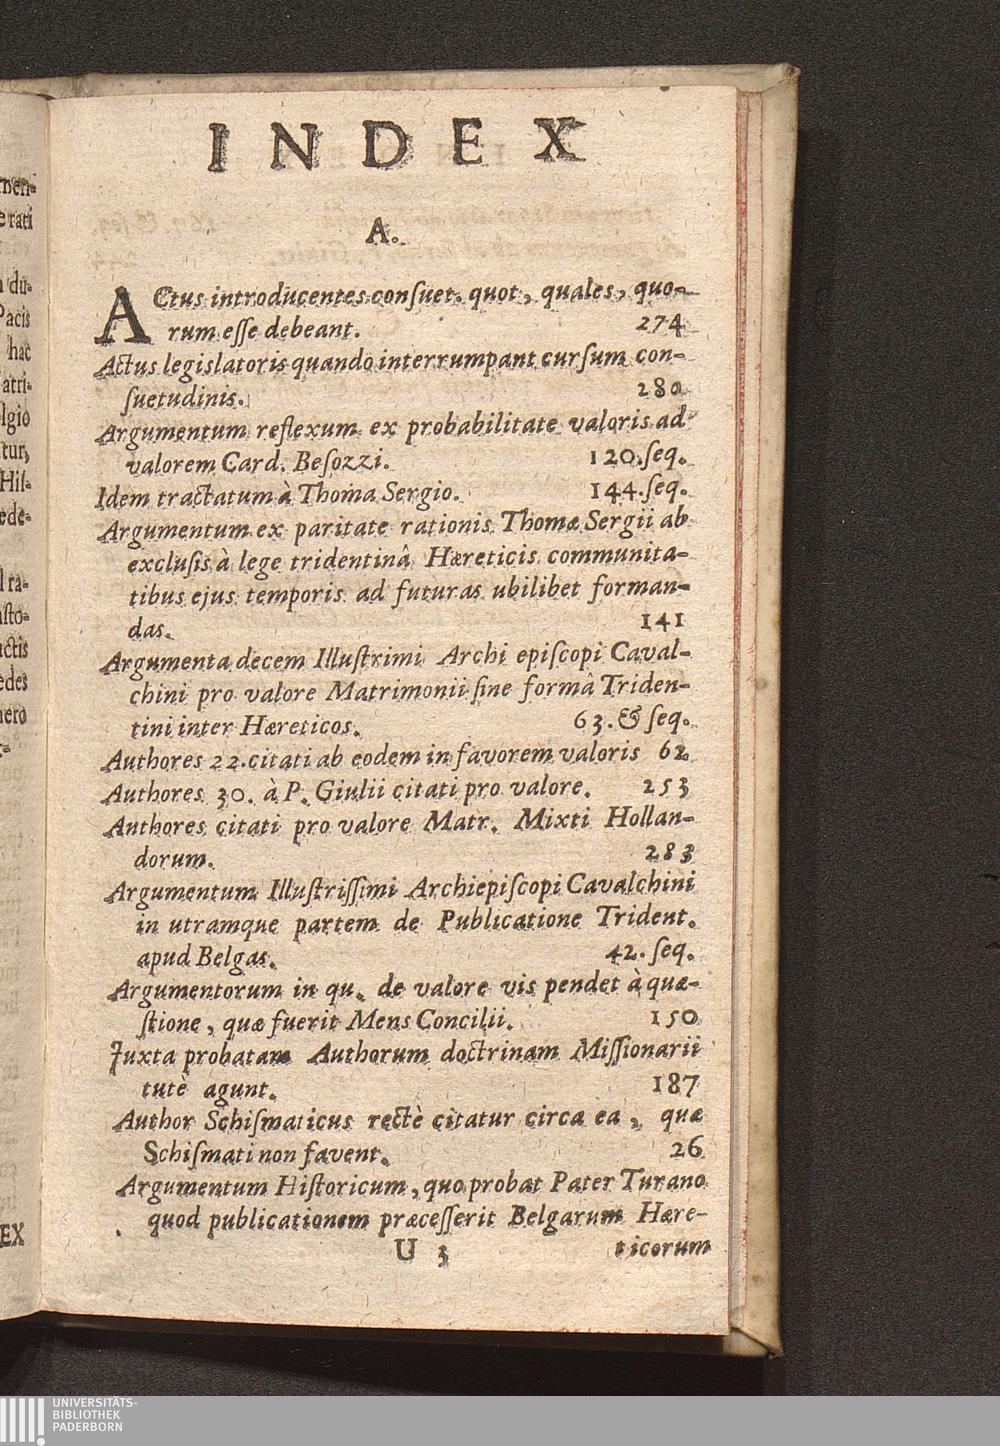 INDEX
A.
ACtus introducentes consuet. quot, quales, quo-
rum esse debeant. 274
Actus legislatoris quando interrumpant cursum con-
suetudinis. 280
Argumentum reflexum ex probabilitate valoris ad
valorem Card. Besozzi. 120. seq.
Idem tractatum à Thoma Sergio. 144. seq.
Argumentum ex paritate rationis Thomæ Sergii ab
exclusis à lege tridentinâ Hæreticis communita-
tibus ejus temporis ad futuras ubilibet forman-
das. 141
Argumenta decem Illustrimi Archi episcopi Caval-
chini pro valore Matrimonii sine formâ Triden-
tini inter Hæreticos. 63. & seq.
Authores 22. citati ab eodem in favorem valoris 62
Authores 30. à P. Giulii citati pro valore. 253
Authores citati pro valore Matr. Mixti Hollan-
dorum. 283
Argumentum Illustrissimi Archiepiscopi Cavalchini
in utramque partem de Publicatione Trident.
apud Belgas. 42. seq.
Argumentorum in qu. de valore vis pendet à quæ-
stione, quæ fuerit Mens Concilii. 150
Juxta probatam Authorum doctrinam Missionarii
tutè agunt. 187
Author Schismaticus rectè citatur circa ea, quæ
Schismati non favent. 26
Argumentum Historicum, quo probat Pater Turano
quod publicationem præcesserit Belgarum Hære-
U 3 ticorum
e rati
du-
Pacis
hac
atri-
lgio
tur,
His-
ede-
l ra-
isto-
uctis
edes
nero
EX
UNIVERSITÄTS-
BIBLIOTHEK
PADERBORN